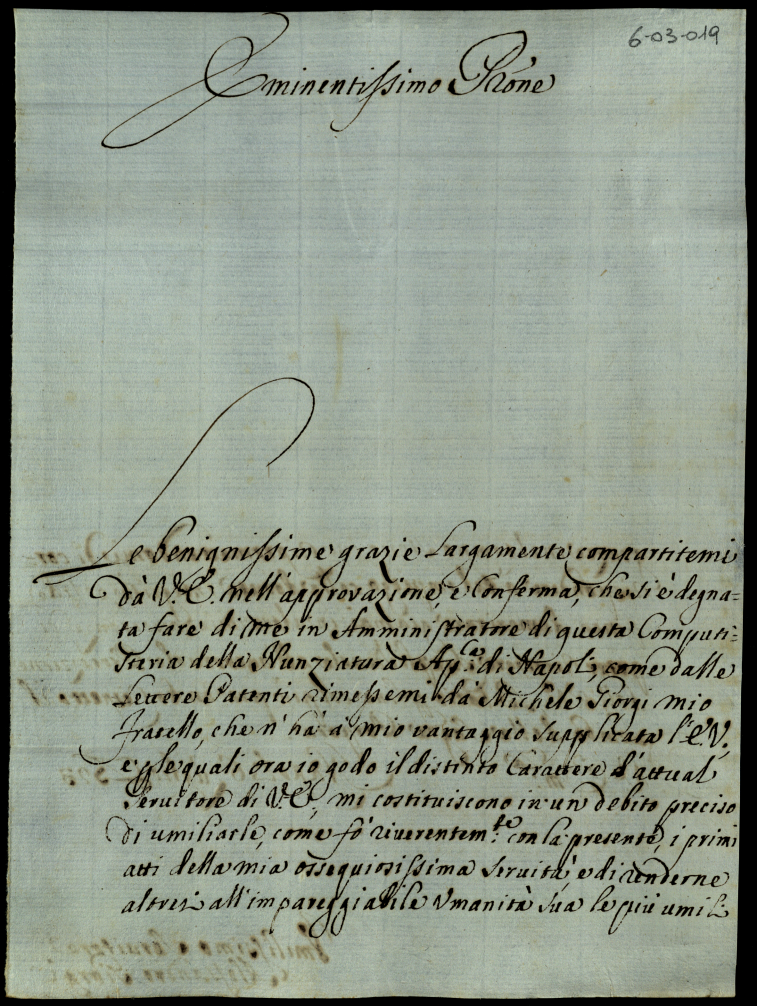 6-03-019
Eminentissimo Prône
Le benignissime grazie Largamente compartitemi
dà V.E. nell'approvazione, e Conferma, che si è degna=
ta fare di me in Amministratore di questa Computi=
steria della Nunziatura Ap.ca di Napoli, come dalle
Lettere Patenti rimessemi da Michele Giorgi mio
fratello, che n'hà à mio vantaggio supplicata l'E.V.,
e ple quali ora io godo il distinto Carattere d'attual
Servitore di V.E., mi costituiscono in un debito preciso
di umiliarle, come fò riverentem.te con la presente, i primi
atti della mia ossequiosissima servitù e di renderne
altresì all'impareggiabile Umanità sua le più umili